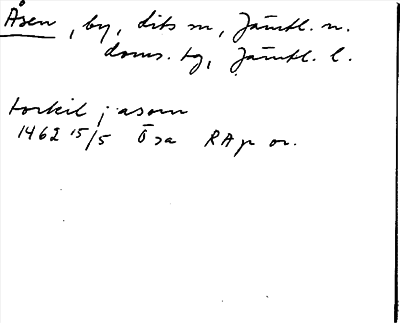 Åsen, by, Lits sn, Jämtl. n.
doms. tg, Jämtl. l.
torkil j asom
1462 15/5 Ösa RAp or.